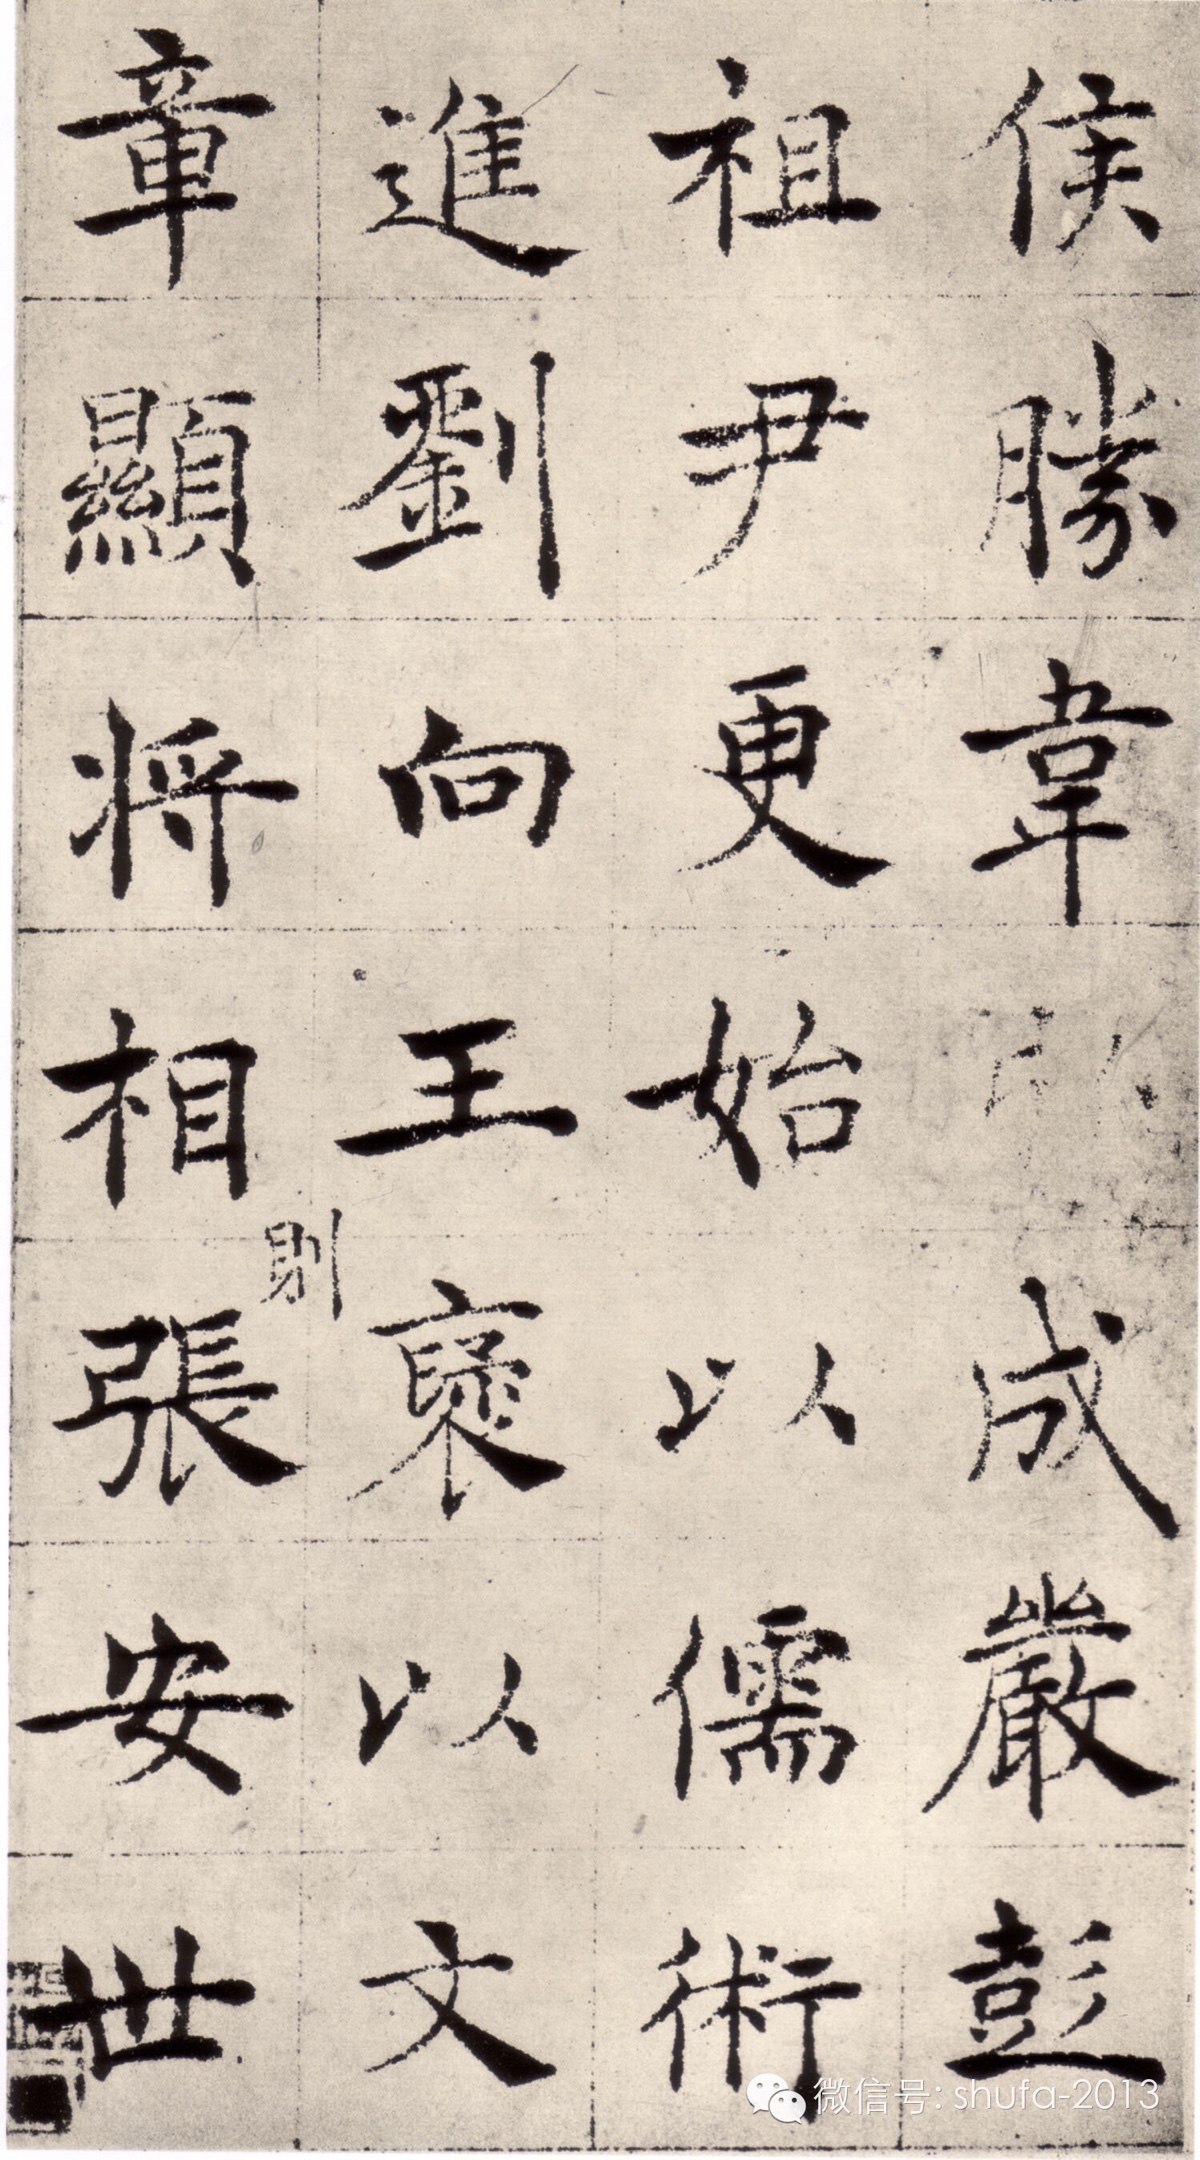 侯勝韋成嚴彭
祖尹更始以儒術
進劉向王褒以文
章顯将相則張安世
微信号: shufa-2013